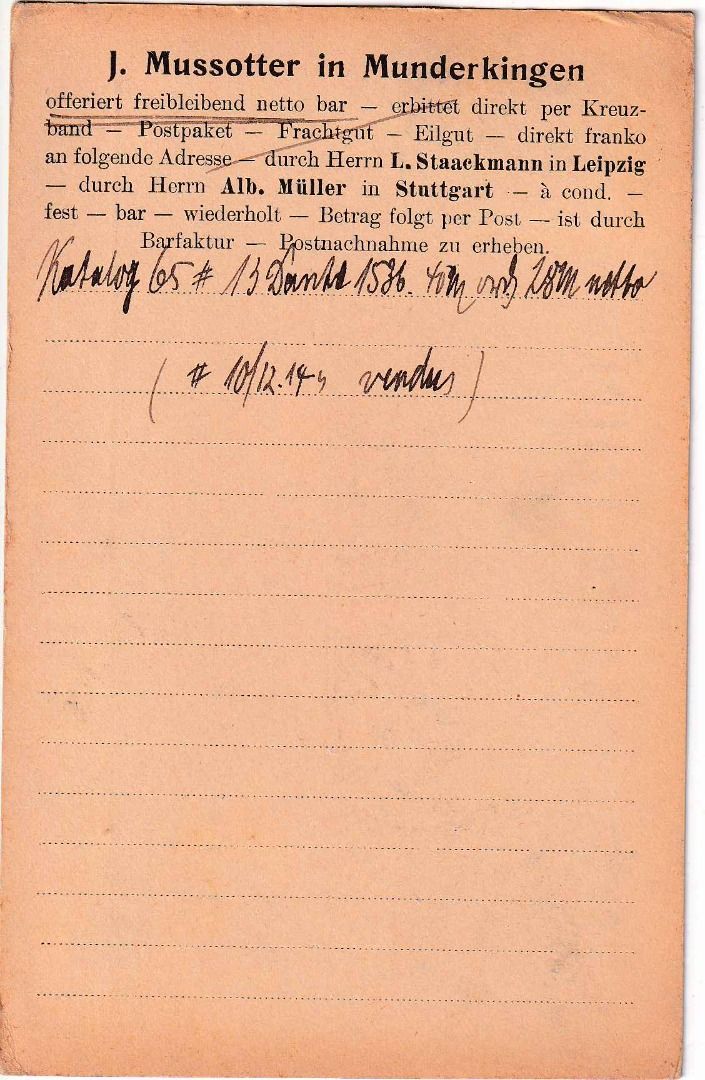 J. Mussotter in Munderkingen
offeriert freibleibend netto bar — erbittet direkt per Kreuz-
band — Postpaket — Frachtgut — Eilgut — direkt franko
an folgende Adresse — durch Herrn L. Staackmann in Leipzig
— durch Herrn Alb. Müller in Stuttgart — à cond. —
fest — bar — wiederholt — Betrag folgt per Post — ist durch
Barfaktur — Postnachnahme zu erheben.
Katalog 65 # 13 Dante 1586. 40M ord. 28M netto
( # 10/12. 14 vendus )